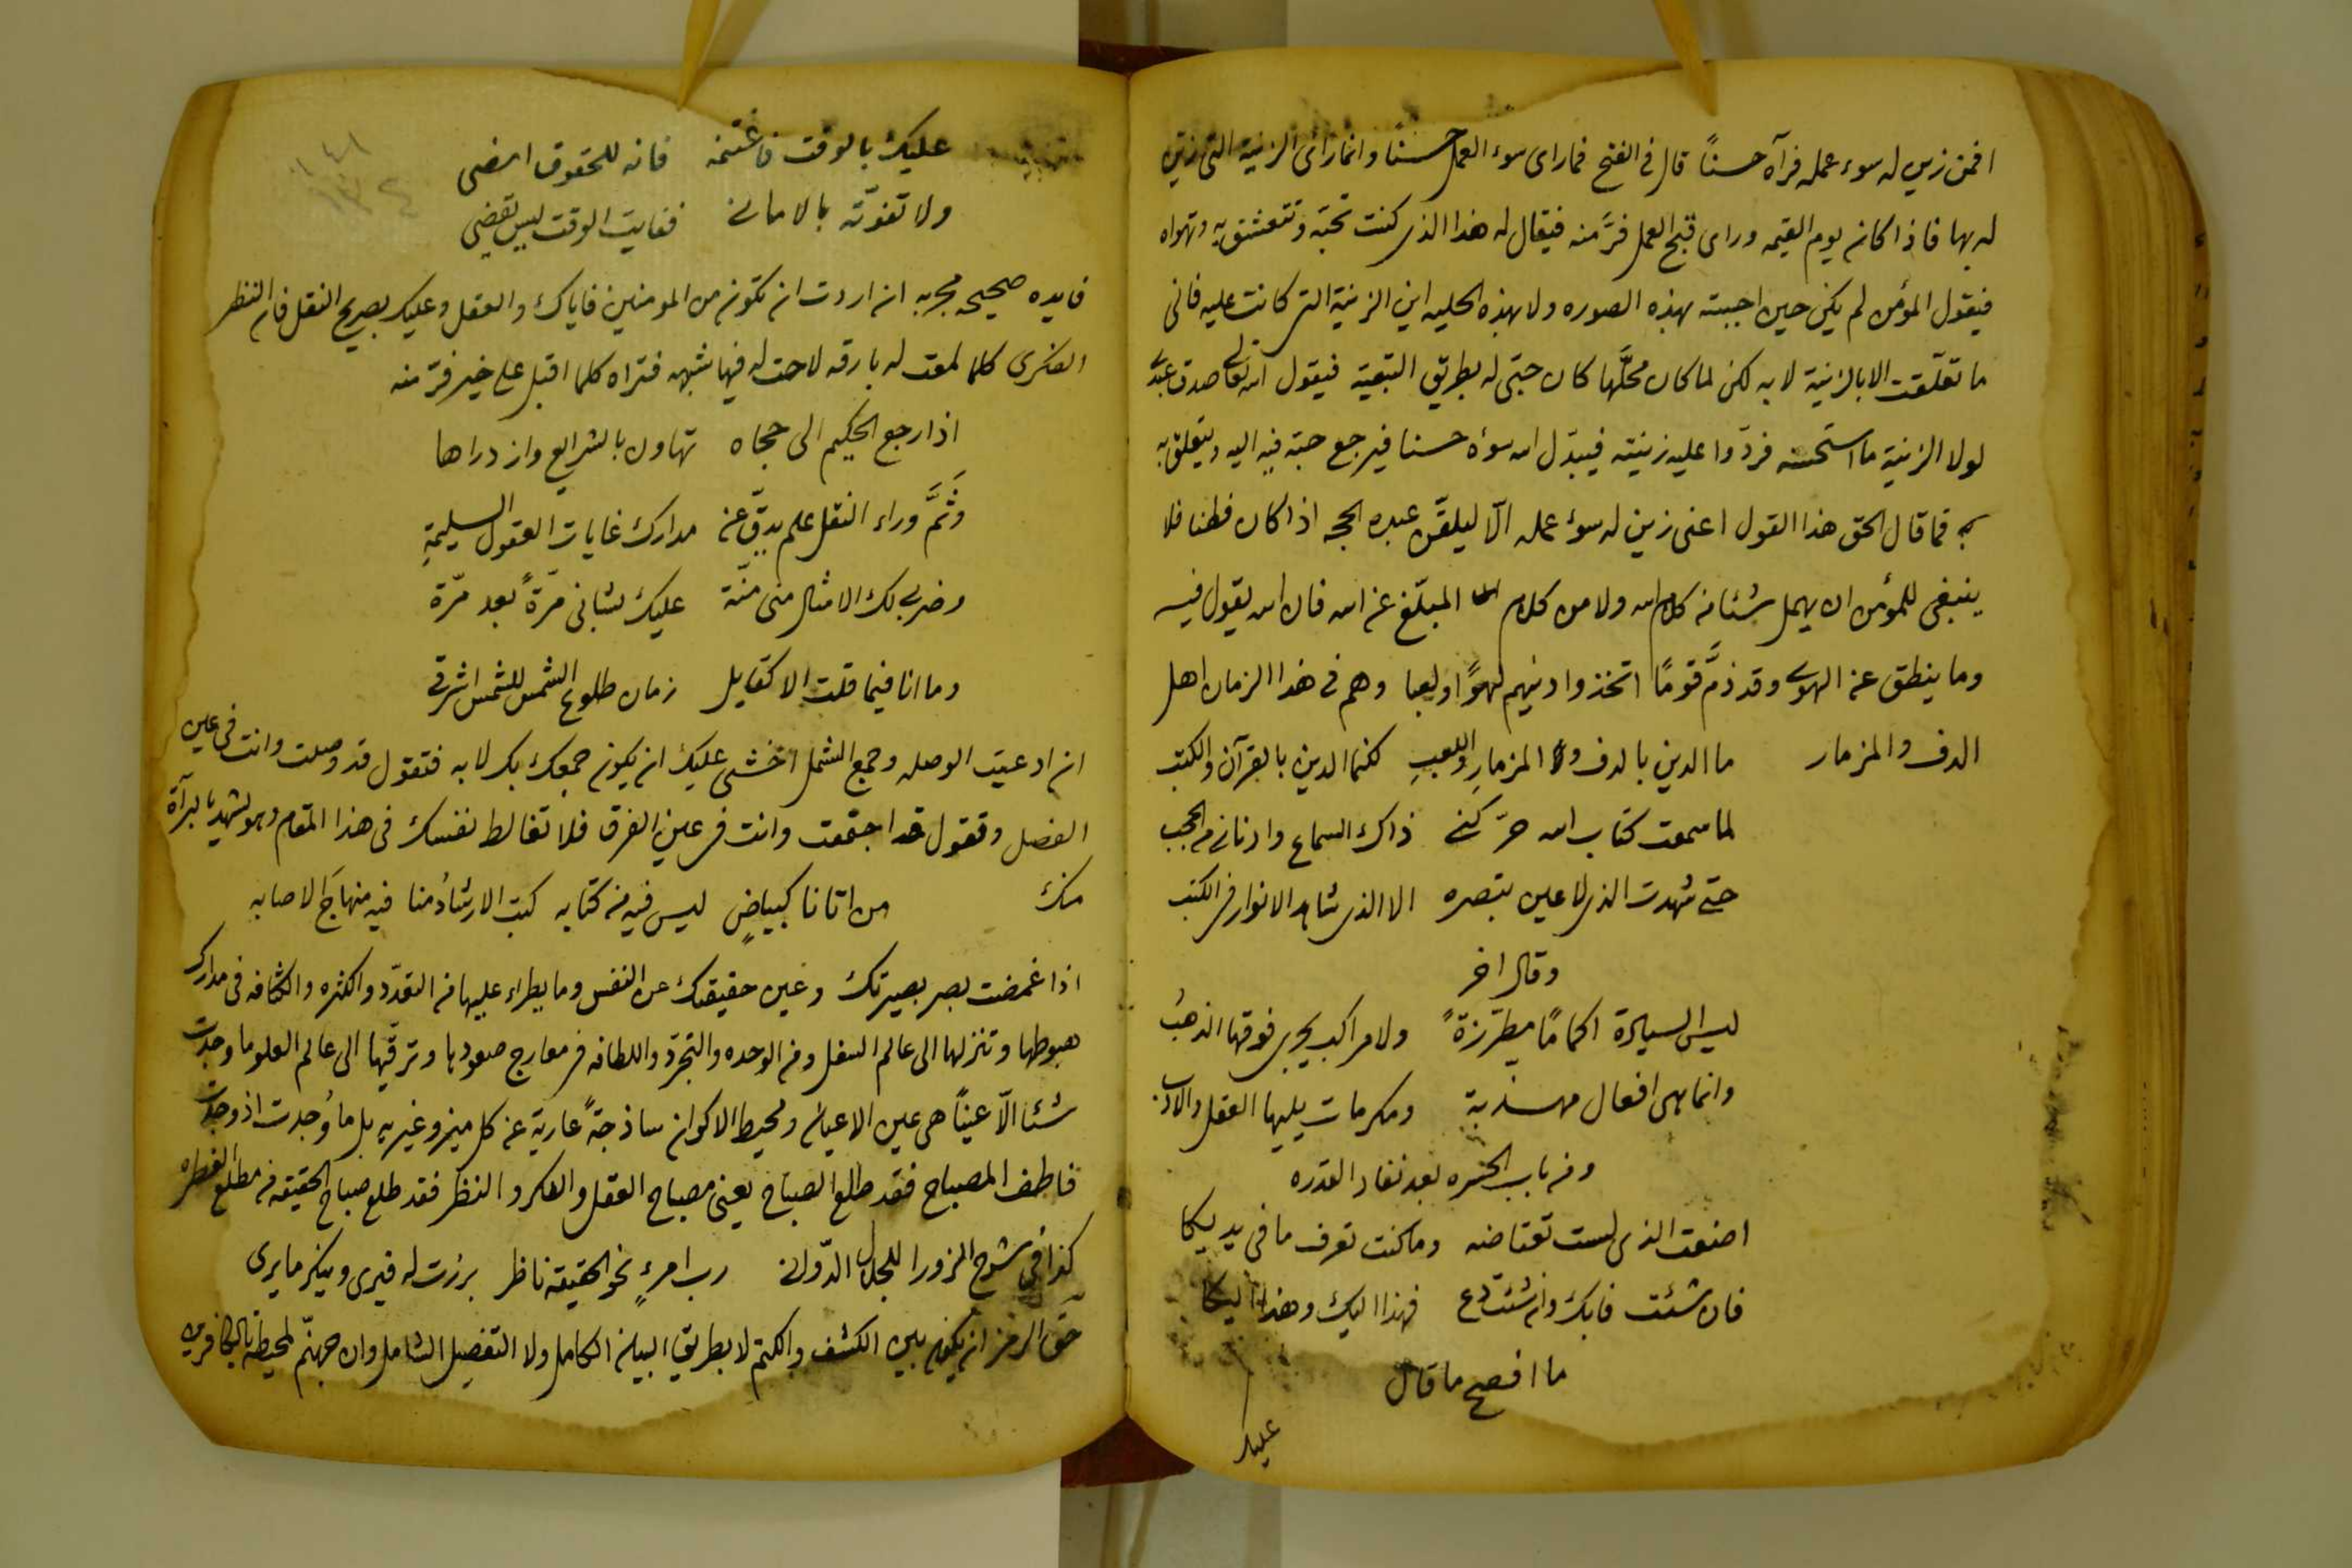 افمن زين له سوء عمله فرآه حسناً قال في الفتح فما راى سوء العمل حسناً وانما رأى الزينة التى زين
له بها فاذا كان يوم القيمه وراى قبح العمل فرَّ منه فيقال له هذا الذى كنت تحبّه وتتعشق به وتهواه
فيقول المؤمن لم يكن حين احببته بهذه الصوره ولا بهذه الحليه اين الزينة التى كانت عليه فانى
ما تعلّقت الا بالزينة لا به لكن لما كان محلَّها كان حبّى له بطريق التبعية فيقول الله تعالى صدق عبدى
لولا الزينة ما استحسنه فردّوا عليه زينته فيبدّل الله سوءه حسنا فيرجع حبّه فيه اليه ويتعلق به
فما قال الحق هذا القول اعنى زين له سوء عمله الّا ليلقّن عبده الحجه اذا كان فطنا فلا
ينبغى للمؤمن ان يهمل شئا من كلام الله ولا من كلام المبلّغ عن الله فان الله يقول فيه
وما ينطق عن الهوى وقد ذمَّ قومًا اتخذوا دينهم لهوًا ولعبا وهم فى هذا الزمان اهل
الدف والمزمار ما الدين بالدف والمزمارِ واللعبِ لكنما الدين بالقرآن والكتب
لما سمعت كتاب الله حرّكنى ذاك السماع وادنانى من الحجب
حتى شهدت الذى لا عين تبصره الا الذى شاهد الانوار فى الكتب
وقال اخر
ليس السيادة اكمامًا مطرّزةً ولا مراكب يجرى فوقها الذهبُ
وانما هى افعال مهذبة ومكرمات يليها العقل والادب
ومن باب الحسره بعد نفاد القدره
اضعت الذى لست تعتاضه وما كنت تعرف ما فى يديكا
فان شئت فابك وان شئت دع فهذا اليك وهذا اليكا
ما افصح ما قال
عليك
عليك بالوقت فاغتنمه فانه للحقوق امضى
ولا تفوّته بالامانى ففايت الوقت ليس يقضى
فايده صحيحه مجربه ان اردت ان تكون من المومنين فاياك والعقل وعليك بصريح النقل فان النظر
الفكرى كلما لمعت له بارقه لاحت له فيها شبهه فتراه كلما اقبل على خير فرّ منه
اذا رجع الحكيم الى حجاه تهاون بالشرايع وازدراها
وَثَمَّ وراء النقل علم يدقّ عن مدارك غايات العقول السليمةِ
وضربى لك الامثال منى منّة عليك بشانى مرّةً بعد مرّة
وما انا فيما قلت الا كقايل زمان طلوع الشمس للشمس اشرقى
ان ادعيت الوصله وجمع الشمل اخشى عليك ان يكون جمعك بك لا به فتقول قد وصلت وانت فى عين
الفصل وتقول قد اجتمعت وانت فى عين الفرق فلا تغالط نفسك فى هذا المقام وهو يشهد بالبرآة
منك من اتانا كبياضٍ ليس فيه من كتابه كتب الارشادُ منا فيه منهاجَ الاصابه
اذا غمضت بصر بصيرتك وعين حقيقتك عن النفس وما يطراء عليها من التعدّد والكثره والكثافه فى مدارك
هبوطها وتنزلها الى عالم السفل ومن الوحده والتجرّد واللطافه فى معارج صعودها وترقّيها الى عالم العلو ما وجدت
شئا الّا عيناً هى عين الاعيان ومحيط الاكوان ساذجةً عارية عن كل ميز وغيريه بل ما وُجدت اذ وجدت
فاطف المصباح فقد طلع الصباح يعنى مصباح العقل والفكر والنظر فقد طلع صباح الحقيقه من مطلع الفطره
كذا فى شرح الزورا للجلال الدّوانى رب امرءٍ نحو الحقيقة ناظر برزت له فيرى وينكر ما يرى
حق الرمز ان يكون بين الكشف والكتم لا بطريق البيان الكامل ولا التفصيل الشامل وان جهنّم لمحيطة بالكافرين